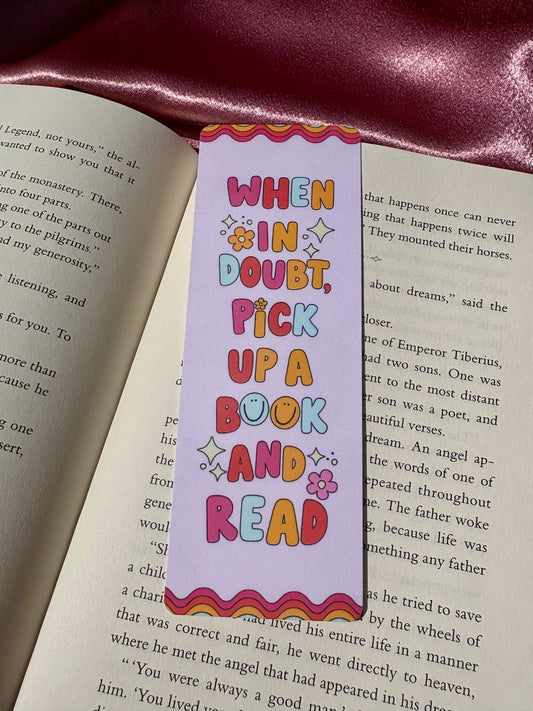 l Legend, not yours," the al-
wanted to show you that it
of the monastery. There,
into four parts.
ng one of the parts out
y to the pilgrims."
nd my generosity,"
e listening, and
s for you. To
more than
cause he
g one
sert,
WHEN
IN
DOUBT,
PICK
UP A
BOOK
AND
READ
that happens once can never
ing that happens twice will
They mounted their horses.
about dreams," said the
closer.
me of Emperor Tiberius,
had two sons. One was
ent to the most distant
er son was a poet, and
eautiful verses.
dream. An angel ap-
pe
his the words of one of
the repeated throughout
from me. The father woke
gene g, because life was
woul mething any father
"S
a child as he tried to save
a chari by the wheels of
had lived his entire life in a manner
that was correct and fair, he went directly to heaven,
where he met the angel that had appeared in his dream.
"'You were always a good man,'
him. 'You lived you